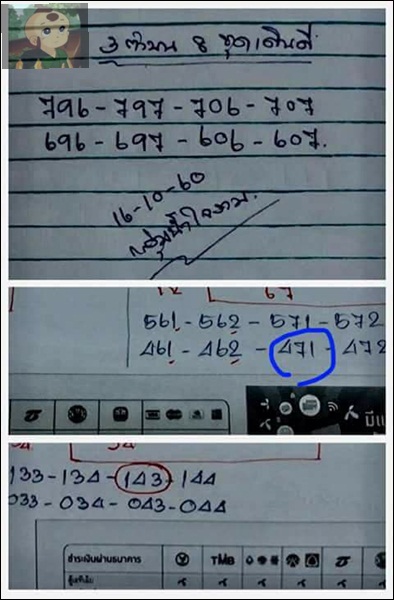 3 ตัวบน 8 ชุดเดินดี
796 - 797 - 706 - 707
696 - 697 - 606 - 607.
16-10-60
67
561 - 562 - 571 - 572
461 - 462 - 471 - 472
133 - 134 - 143 - 144
033 - 034 - 043 - 044
ชำระเงินผ่านธนาคาร TMB